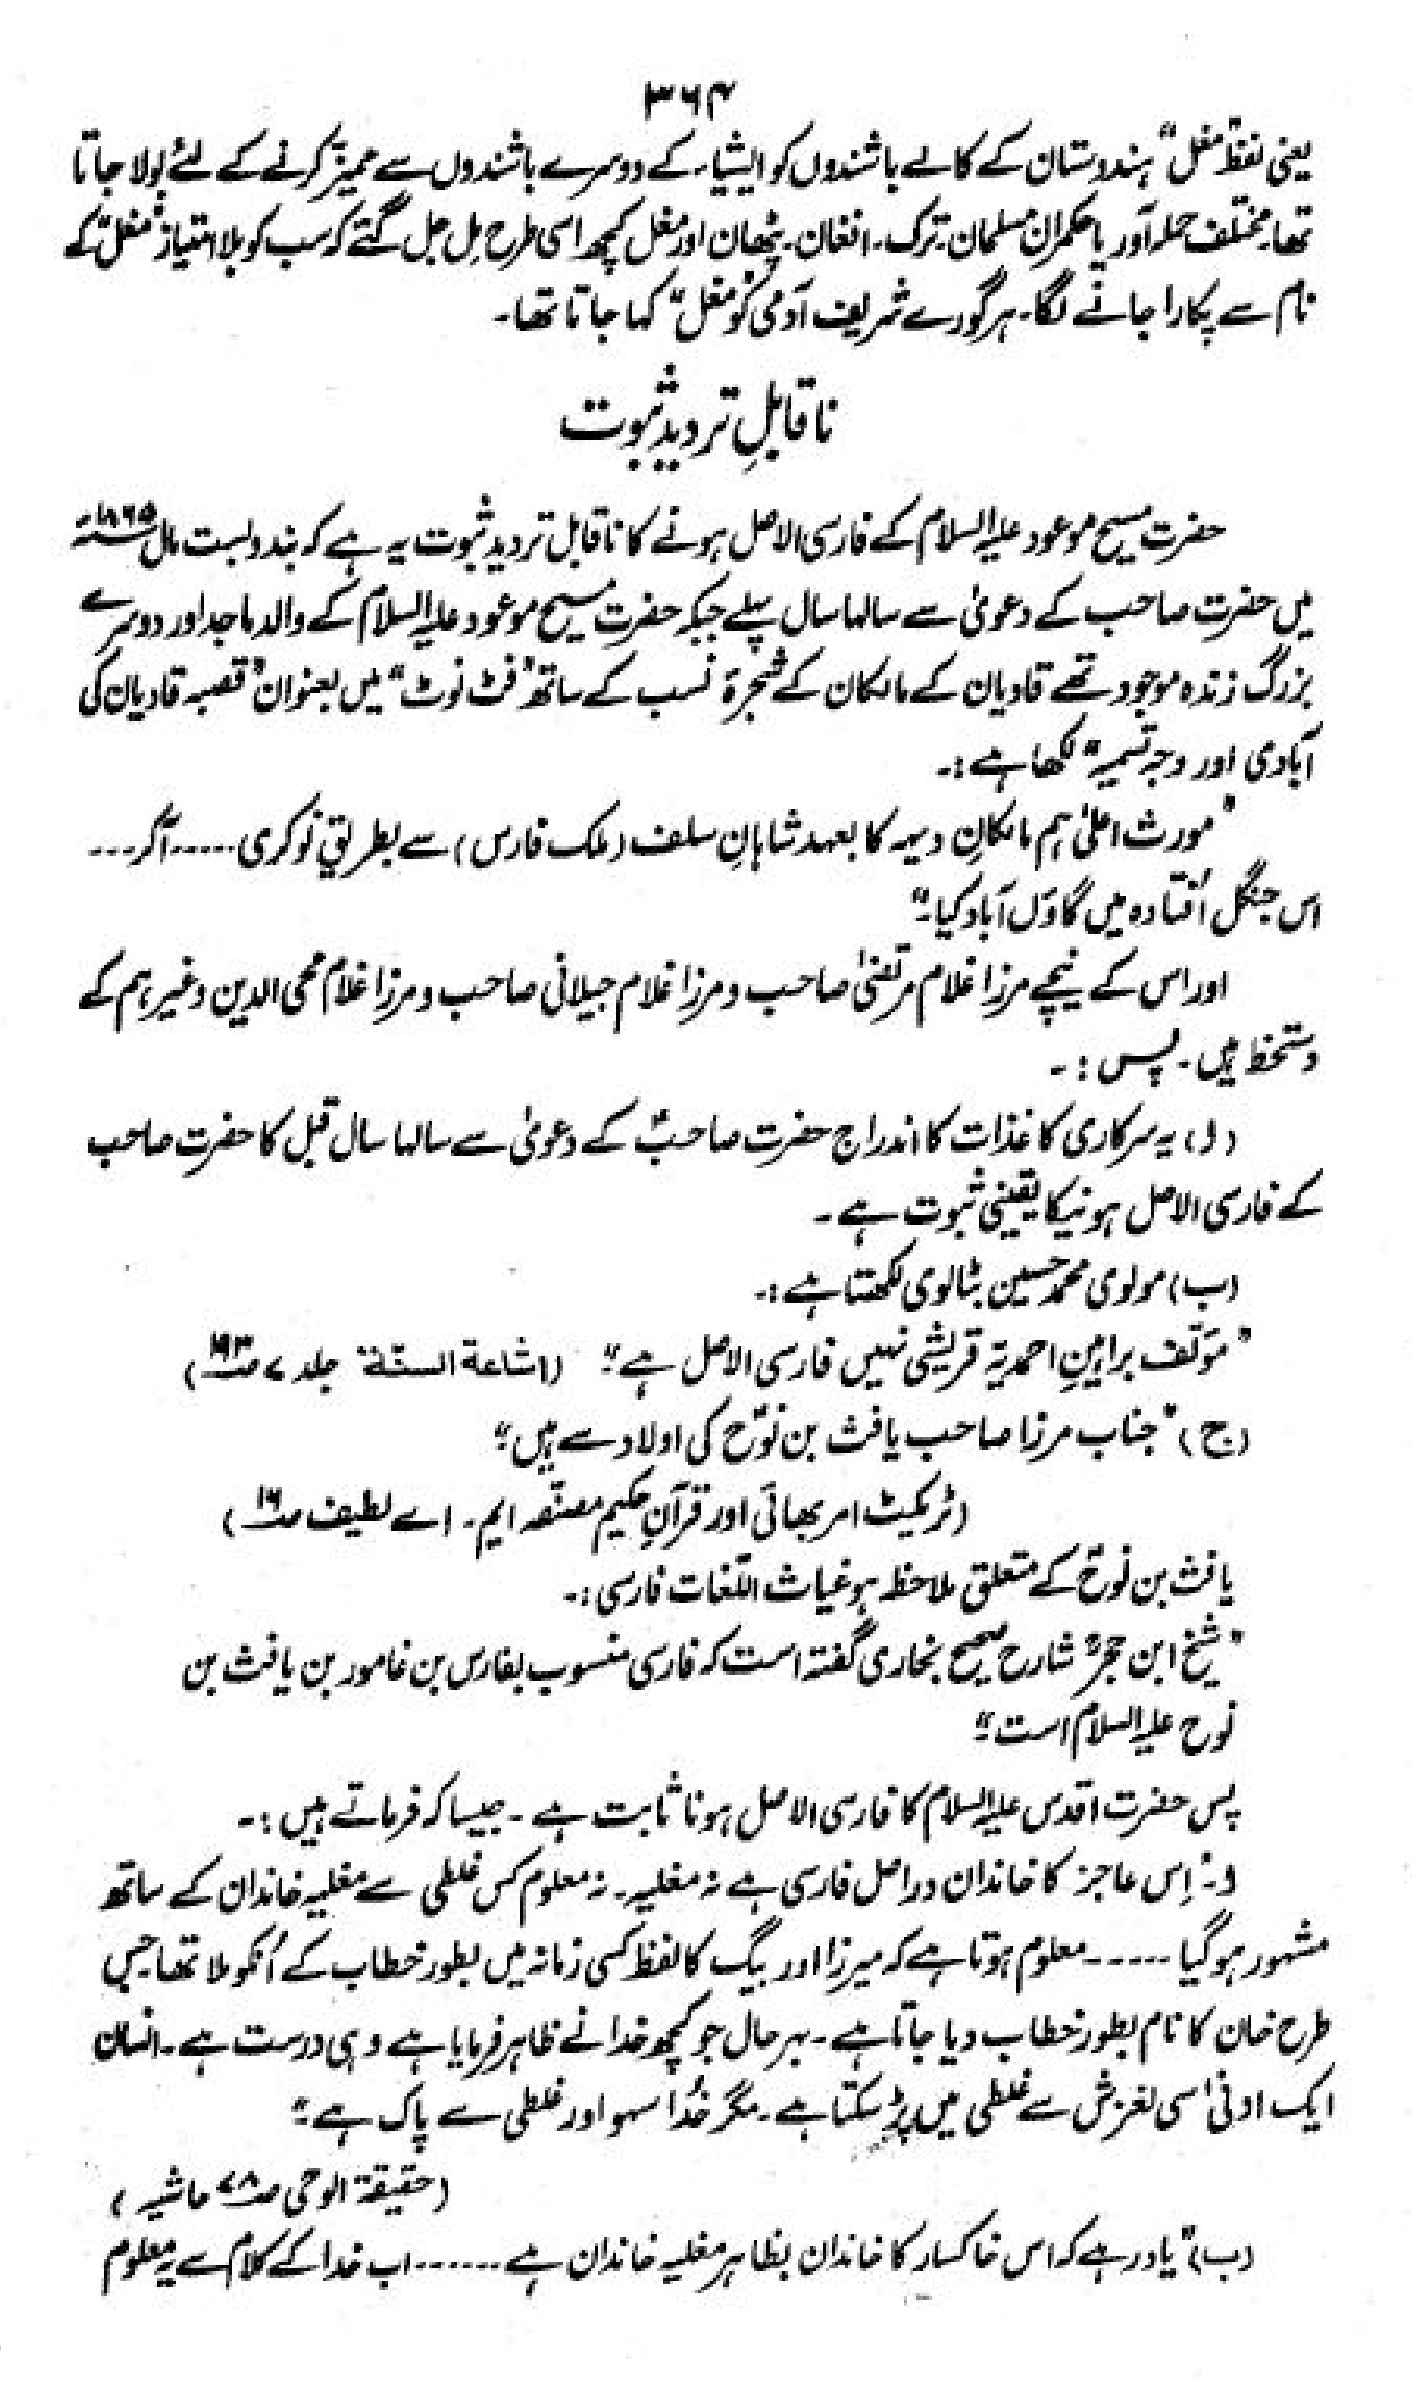 ۳۶۴
یعنی لفظ "مغل" ہندوستان کے کالے باشندوں کو ایشیاء کے دوسرے باشندوں سے ممیز کرنے کے لئے بولا جاتا
تھا۔ مختلف حملہ آور یا حکمران مسلمان ترک۔ افغان۔ پٹھان اور مغل کچھ اسی طرح مل جل گئے کہ سب کو بلا امتیاز "مغل" کے
نام سے پکارا جانے لگا۔ ہر گورے شریف آدمی کو "مغل" کہا جاتا تھا۔
ناقابلِ تردید ثبوت
حضرت مسیح موعود علیہ السلام کے فارسی الاصل ہونے کا ناقابل تردید ثبوت یہ ہے کہ بندوبست مال ۱۸۶۵ء
میں حضرت صاحب کے دعویٰ سے سالہا سال پہلے جبکہ حضرت مسیح موعود علیہ السلام کے والد ماجد اور دوسرے
بزرگ زندہ موجود تھے قادیان کے مالکان کے شجرۂ نسب کے ساتھ "فٹ نوٹ" میں بعنوان "قصبہ قادیان کی
آبادی اور وجہ تسمیہ" لکھا ہے:۔
"مورث اعلیٰ ہم مالکانِ دیہہ کا بعہد شاہانِ سلف (ملک فارس) سے بطریق نوکری ..... آکر ...
اس جنگل اُفتادہ میں گاؤں آباد کیا۔"
اور اس کے نیچے مرزا غلام مرتضیٰ صاحب و مرزا غلام جیلانی صاحب و مرزا غلام محی الدین وغیرہم کے
دستخط ہیں۔ پس :۔
(ا) یہ سرکاری کاغذات کا اندراج حضرت صاحبؑ کے دعویٰ سے سالہا سال قبل کا حضرت صاحب
کے فارسی الاصل ہونیکا یقینی ثبوت ہے۔
(ب) مولوی محمد حسین بٹالوی لکھتا ہے:۔
"مؤلف براہینِ احمدیہ قریشی نہیں فارسی الاصل ہے" (اشاعۃ السنۃ جلد ۷ صـ۱۹۳)
(ج) "جناب مرزا صاحب یافث بن نوحؑ کی اولاد سے ہیں"
(ٹریکٹ امر بھائی اور قرآنِ حکیم مصنفہ ایم۔ اے لطیف صـ۱۶)
یافث بن نوحؑ کے متعلق ملاحظہ ہو غیاث اللغات فارسی:۔
"شیخ ابن حجرؒ شارح صحیح بخاری گفتہ است کہ فارسی منسوب بفارس بن غامور بن یافث بن
نوح علیہ السلام است"
پس حضرت اقدس علیہ السلام کا فارسی الاصل ہونا ثابت ہے۔ جیسا کہ فرماتے ہیں:۔
و۔ اِس عاجز کا خاندان دراصل فارسی ہے نہ مغلیہ۔ نہ معلوم کس غلطی سے مغلیہ خاندان کے ساتھ
مشہور ہو گیا ..... معلوم ہوتا ہے کہ میرزا اور بیگ کا لفظ کسی زمانہ میں بطور خطاب کے اُنکو ملا تھا جس
طرح خان کا نام بطور خطاب دیا جاتا ہے۔ بہرحال جو کچھ خدا نے ظاہر فرمایا ہے وہی درست ہے۔ انسان
ایک ادنیٰ سی لغزش سے غلطی میں پڑ سکتا ہے۔ مگر خُدا سہو اور غلطی سے پاک ہے"
(حقیقۃ الوحی صـ۷۸ حاشیہ)
(ب) "یاد رہے کہ اس خاکسار کا خاندان بظاہر مغلیہ خاندان ہے ...... اب خدا کے کلام سے یہ معلوم